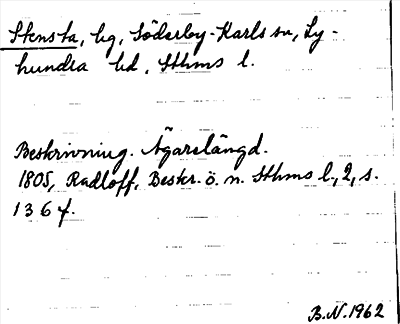 Stensta, hg, Söderby-Karls sn, Ly-
hundra hd, Sthms l.
Beskrivning. Ägarelängd.
1805, Radloff, Beskr. ö. n. Sthms l., 2, s.
136 f.
B.N. 1962